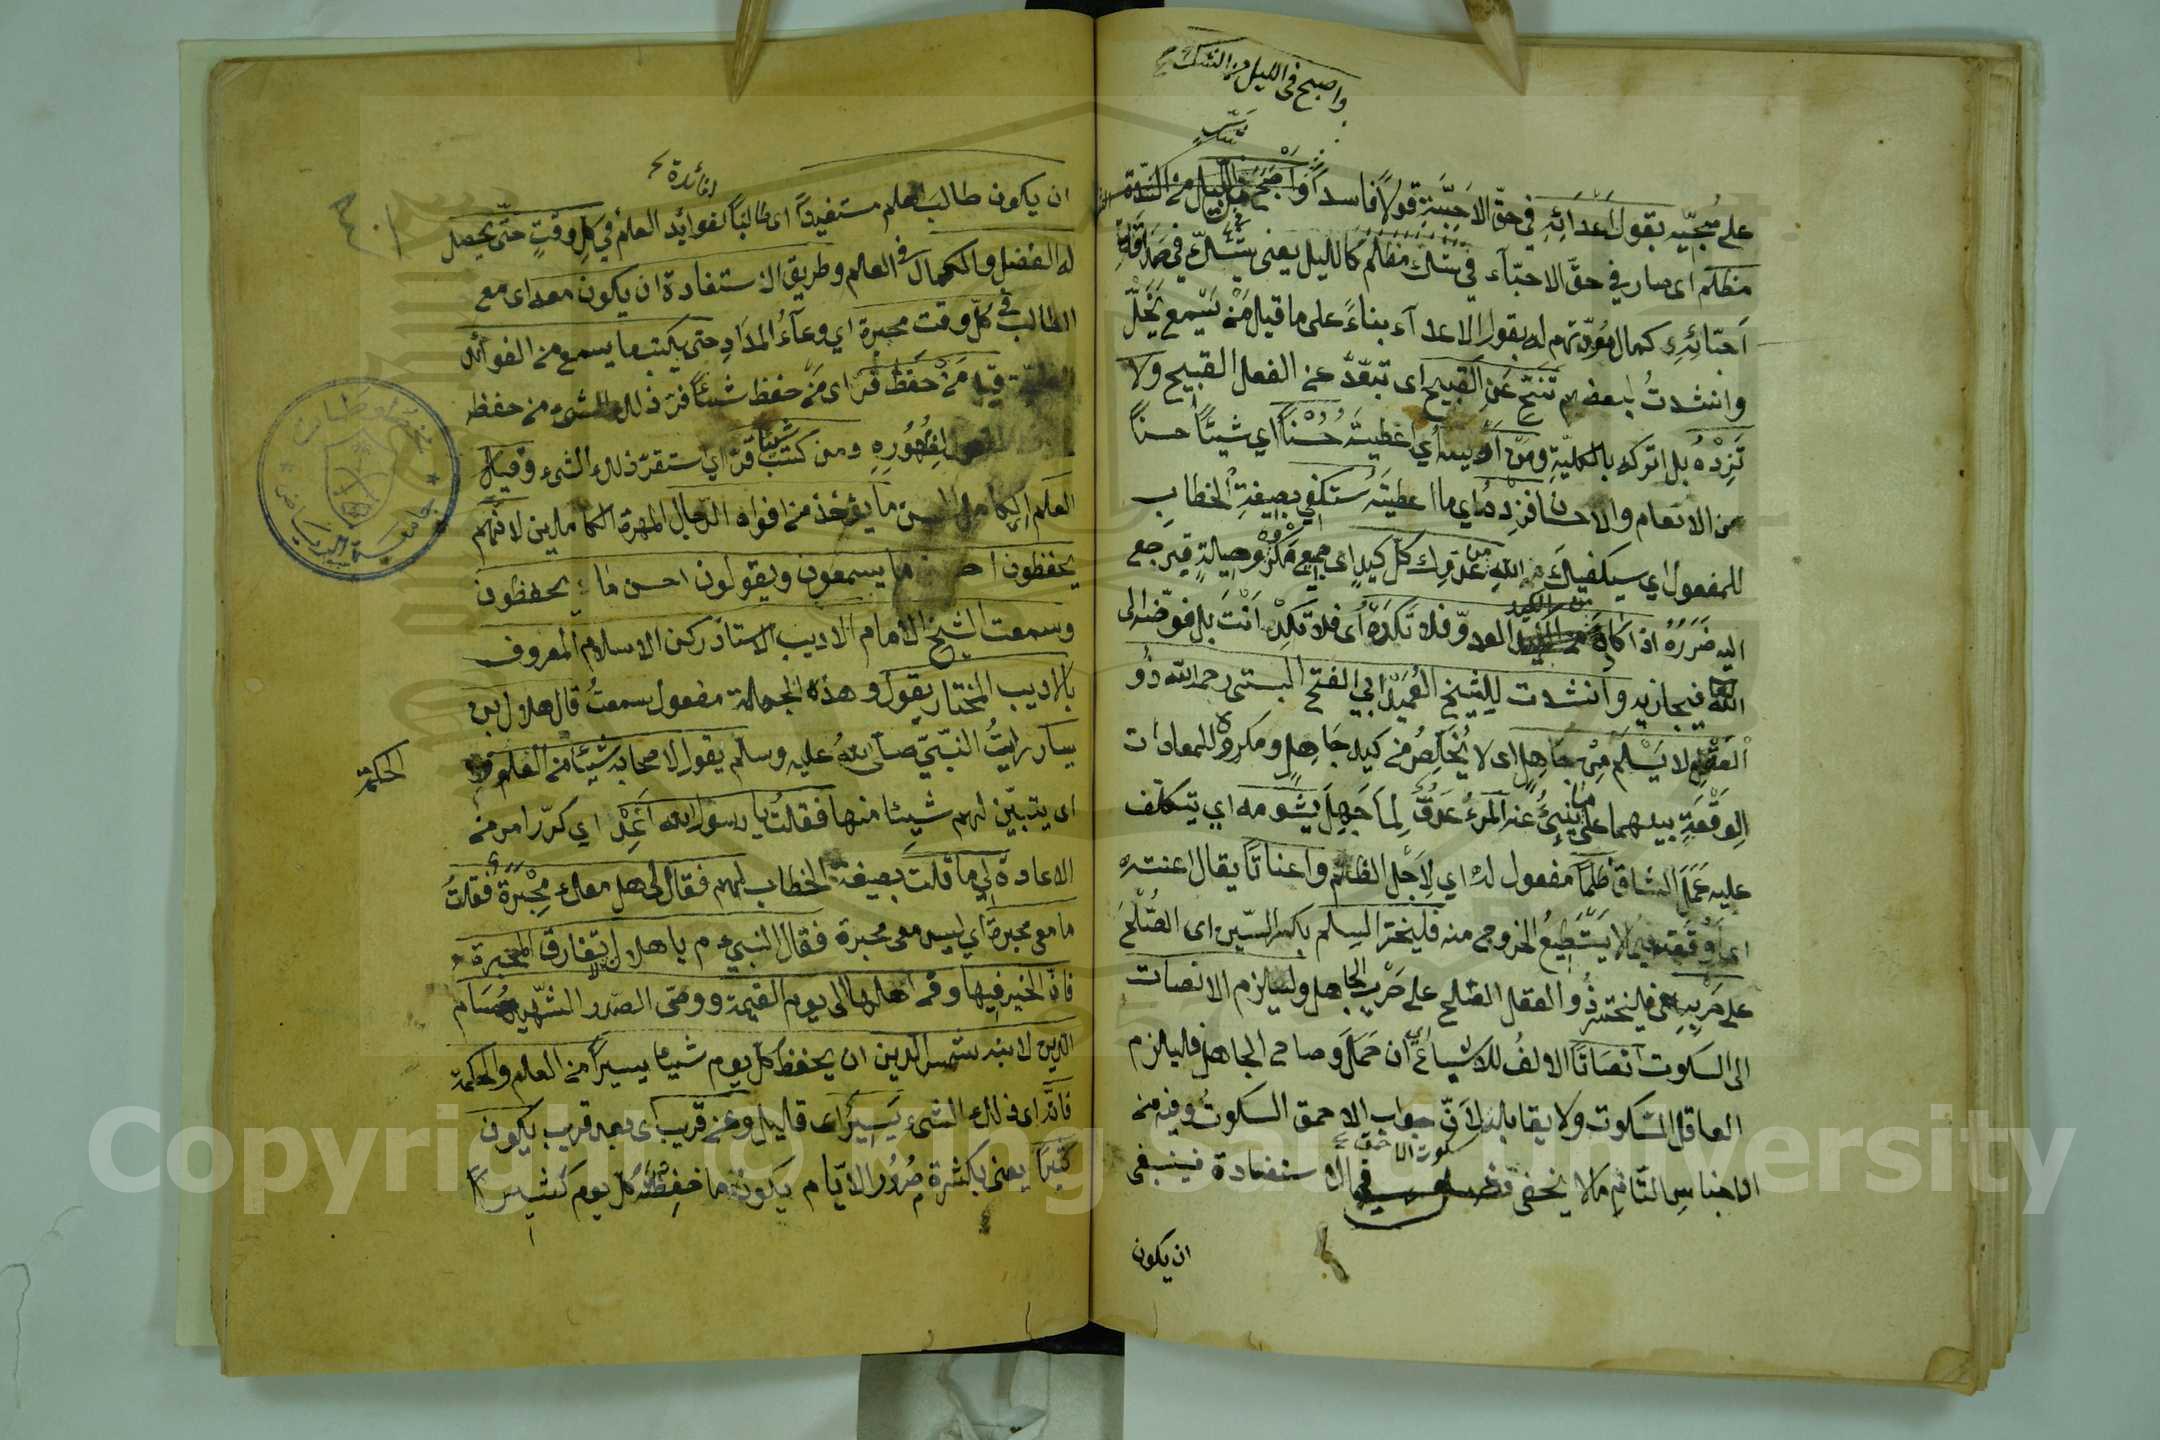 واصبح في الليل من الشك
على محبّيه بقول أعدائه في حقّ الاحبّة قولاً فاسداً وأصبح في الليل من الشك
مظلم اى صار في حقّ الاحبّاء في شك مظلم كالليل يعنى يشك في صداقة
احبّائه كمال مودّتهم له بقول الاعداء بناءً على ما قيل مَنْ يسمع يَخَلْ
وانشدتُ لبعضهم تَنَحَّ عَنِ القبيح اى تبعّد عن الفعل القبيح ولا
تَرِدْهُ بل اتركه بالكليّة ومن أوليته أي اعطيته حُسْناً اي شيئاً حسناً
من الانعام والاحسان فزده اي ما اعطيته ستكفى بصيغة الخطاب
للمفعول اي سيكفيك من الله عدوك كلّ كيدٍ اى جميع مكره وحيلته فيرجع
اليه ضرره اذا كاد العدوّ فلا تكده اى فلا تكد انت بل فوّضه الى
الله فيجازيه وانشدت للشيخ العميد ابي الفتح البستى رحمه الله ذُو
العقل لا يَسْلَم مِنْ جَاهِلٍ اى لا يُخَلِّصُ من كيد جاهل ومكروه للمعادات
الوقعة بينهما على ما ينبئ عنه المرءُ عدوٌّ لما جَهِلَ يسُومه اي يتكلف
عليه عَمَلَ الشاق ظلماً مفعول له اي لاجل الظلم واعناتاً يقال اعنته
اى أوقعه فيما لا يستطيع الخروج منه فليختر السلم بكسر السّين اى الصُّلْحَ
على حربه فليختر ذُو العقل الصلح على حرب الجاهل وليلزم الانصات
الى السكوت انصَاتاً الالف للاشباع ان حَمَلَ وصاح الجاهل فليلزم
العاقل السّكوت ولا يقابله لانّ جواب الاحمق السكوتُ وفيه من
سكوت الاحمق
الاجناس التّام ما لا يخفى الاستفادة فينبغى
ان يكون
لفائدة
ان يكون طالب العلم مستفيداً اى طالباً لفوائد العلم في كل وقتٍ حتّى يحصل
له الفضل والكمال في العلم وطريق الاستفادة ان يكون معه اى مع
الطالب في كلّ وقت محبرة اي وعاءُ المدادِ حتى يكتب ما يسمع من الفوائد
قيل مَنْ حفظ فرّ اى مَنْ حفظ شيئاً فرّ ذلك الشئ من حفظه
ومن كتب شيئا قرّ اي استقرّ ذلك الشئ وقيل
العلم الكامل ما يؤخذ من افواه الرجال المهرة الكاملين لانّهم
يحفظون احسن ما يسمعون ويقولون احسن ما يحفظون
وسمعت الشيخ الامام الاديب الاستاد ركن الاسلام المعروف
بالاديب المختار يقول وهذه الجملة مفعول سمعتُ قال هلال بن
يسار رايتُ النّبيّ صلى اللهُ عليه وسلم يقول لاصحابه شيئا من العلم و
الحكمة
اى يتبيّن لهم شيئا منها فقلتُ يا رسول الله اَعِدْ اي كرّر امر من
الاعادة لي ما قلت بصيغة الخطاب لهم فقال لى هل معك محبرة فقلتُ
ما معى محبرة اي ليس معى محبرة فقال النبي م يا هلال لا تفارق المحبرة
فانّ الخير فيها وفي اهلها الى يوم القيمة ووصّى الصدر الشهيد حسام
الدين لابنه شمس الدين ان يحفظ كلّ يوم شيئا يسيراً من العلم والحكمة
فانّه اى ذلك الشئ يَسِيرٌ اى قليل وعن قريب اى بعد قريب يكون
كثيرا يعنى بكثرة مرور الايّام يكون ما حفظته كلّ يوم كثيراً